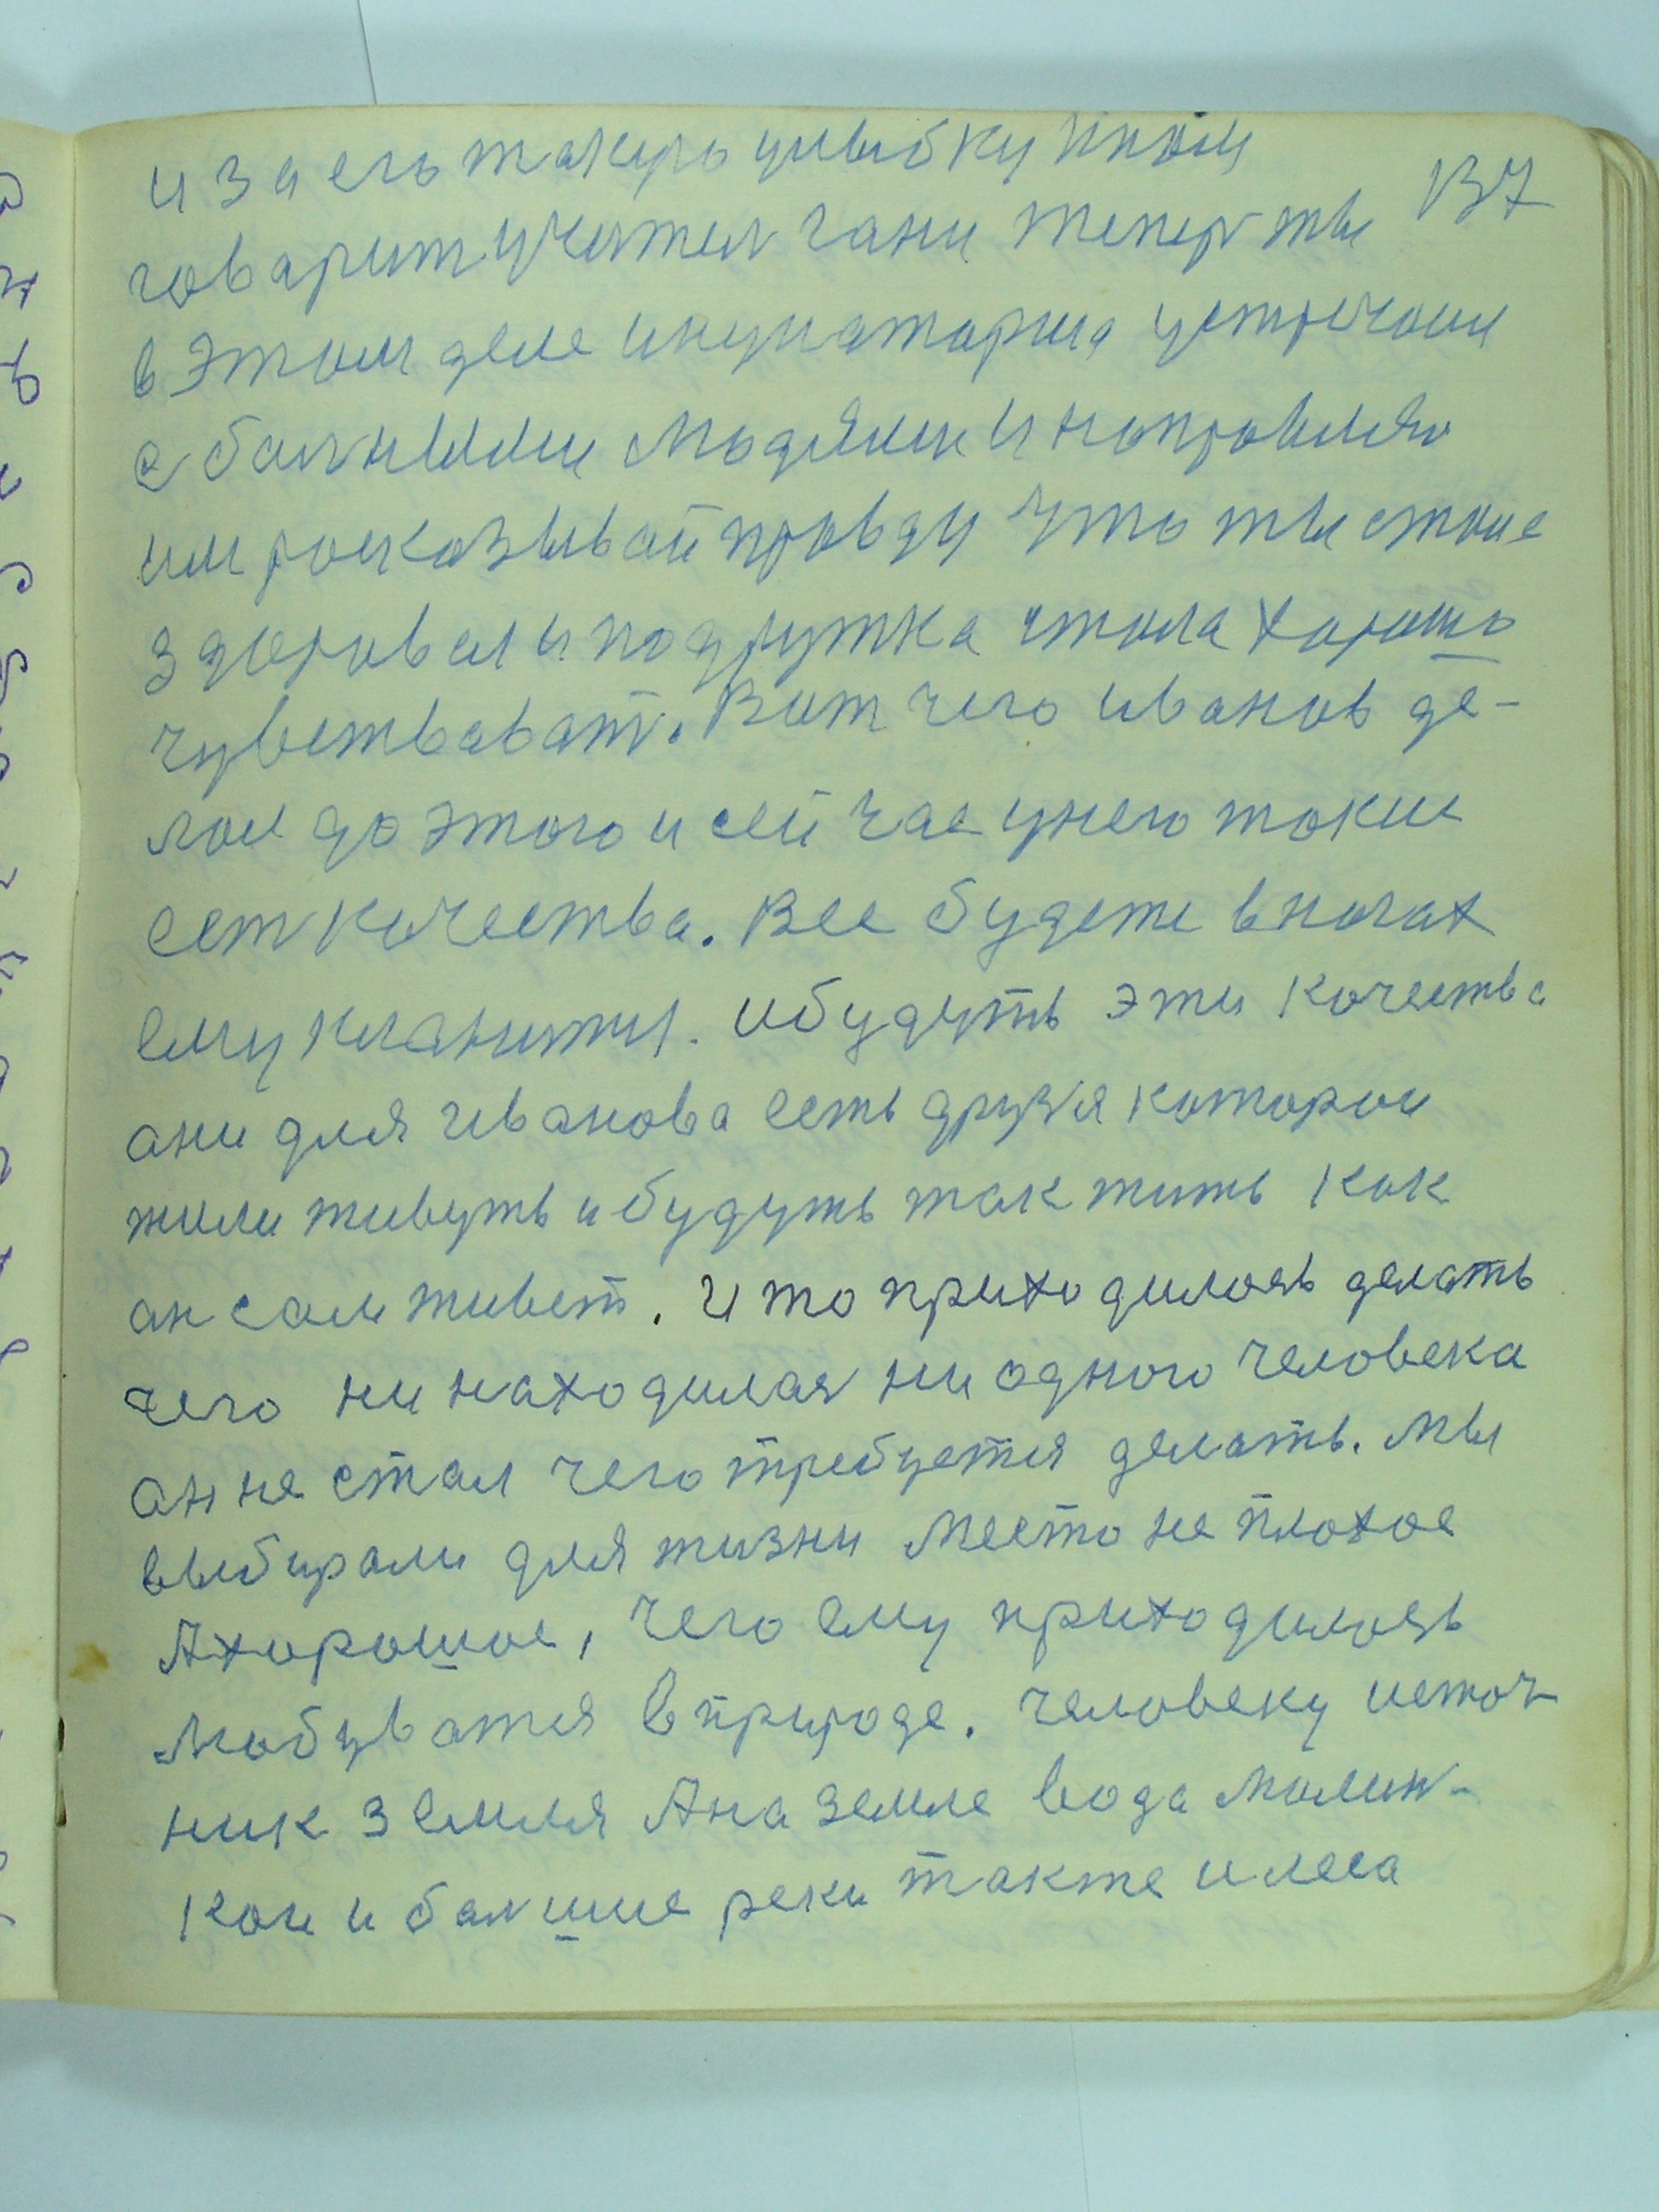 и за его такую улыбку
137
говарит учител гани теперь ты
в этом деле устречаи
с бальными людями и направляю
им росказывай правду что ты стал
здоровам и подрушка стала харошо
чувствават. Вот чего иванов де-
лал до этого и сей час унего такие
ест качества. Все будете вногах
ему кланится. ибудуть эти качества
ани для иванова есть друзя каторои
жили живуть и будуть так жить как
ан сам живет. И то приходилось делать
чего ни находилас ни одного человека
ан не стал чего требуется делать. Мы
выбирали для жизни место не плохое
Ахорошое, чего ему приходилось
любуватся в природе. человеку источ-
ник земля Ана земле вода малин-
кои и балшие реки также и леса